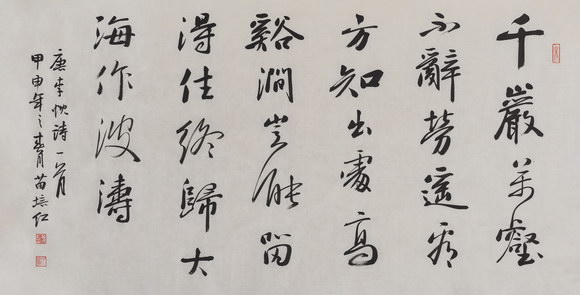 千巖萬壑
不辭勞遠看
方知出處高
谿澗豈能留
得住終歸大
海作波濤
唐李忱詩一首
甲申年之春月苗培红